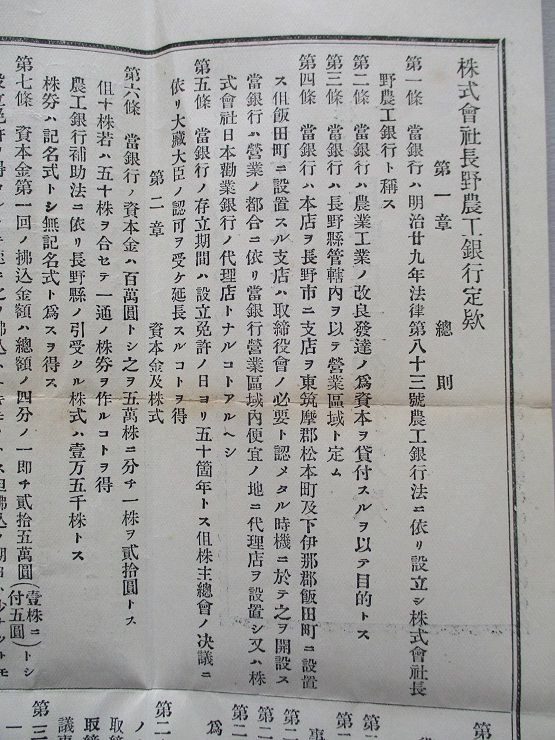 株式會社長野農工銀行定欵
第一章 總則
第一條 當銀行ハ明治廿九年法律第八十三號農工銀行法ニ依リ設立シ株式會社長
野農工銀行ト稱ス
第二條 當銀行ハ農業工業ノ改良發達ノ爲資本ヲ貸付スルヲ以テ目的トス
第三條 當銀行ハ長野縣管轄內ヲ以テ營業區域ト定ム
第四條 當銀行ハ本店ヲ長野市ニ支店ヲ東筑摩郡松本町及下伊那郡飯田町ニ設置
ス伹飯田町ニ設置スル支店ハ取締役會ノ必要ト認メタル時機ニ於テ之ヲ開設ス
當銀行ハ營業ノ都合ニ依リ當銀行營業區域內便宜ノ地ニ代理店ヲ設置シ又ハ株
式會社日本勸業銀行ノ代理店トナルコトアルヘシ
第五條 當銀行ノ存立期間ハ設立免許ノ日ヨリ五十箇年トス伹株主總會ノ决議ニ
依リ大藏大臣ノ認可ヲ受ケ延長スルコトヲ得
第二章 資本金及株式
第六條 當銀行ノ資本金ハ百萬圓トシ之ヲ五萬株ニ分チ一株ヲ貳拾圓トス
伹十株若ハ五十株ヲ合セテ一通ノ株券ヲ作ルコトヲ得
農工銀行補助法ニ依リ長野縣ノ引受クル株式ハ壹万五千株トス
株券ハ記名式トシ無記名式ト爲スヲ得ス
第七條 資本金第一回ノ拂込金額ハ總額ノ四分ノ一即チ貳拾五萬圓(壹株ニ付五圓)トシ